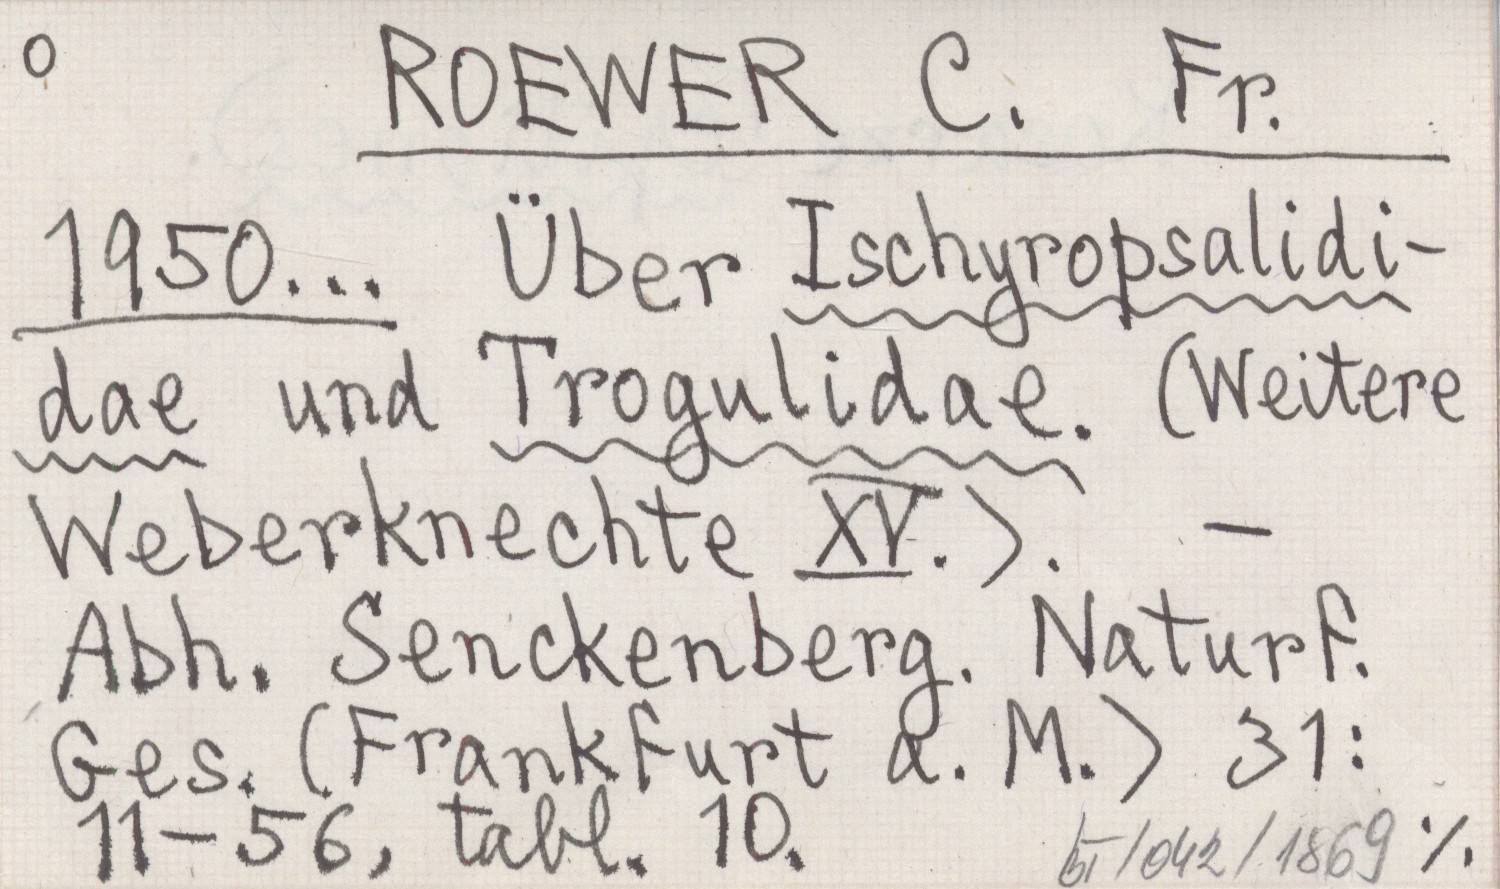 o ROEWER C. Fr.
1950... Über Ischyropsalidi-
dae und Trogulidae. (Weitere
Weberknechte XV.). –
Abh. Senckenberg. Naturf.
Ges. (Frankfurt a. M.) 31:
11–56, tabl. 10.
/042/1869 ·/.